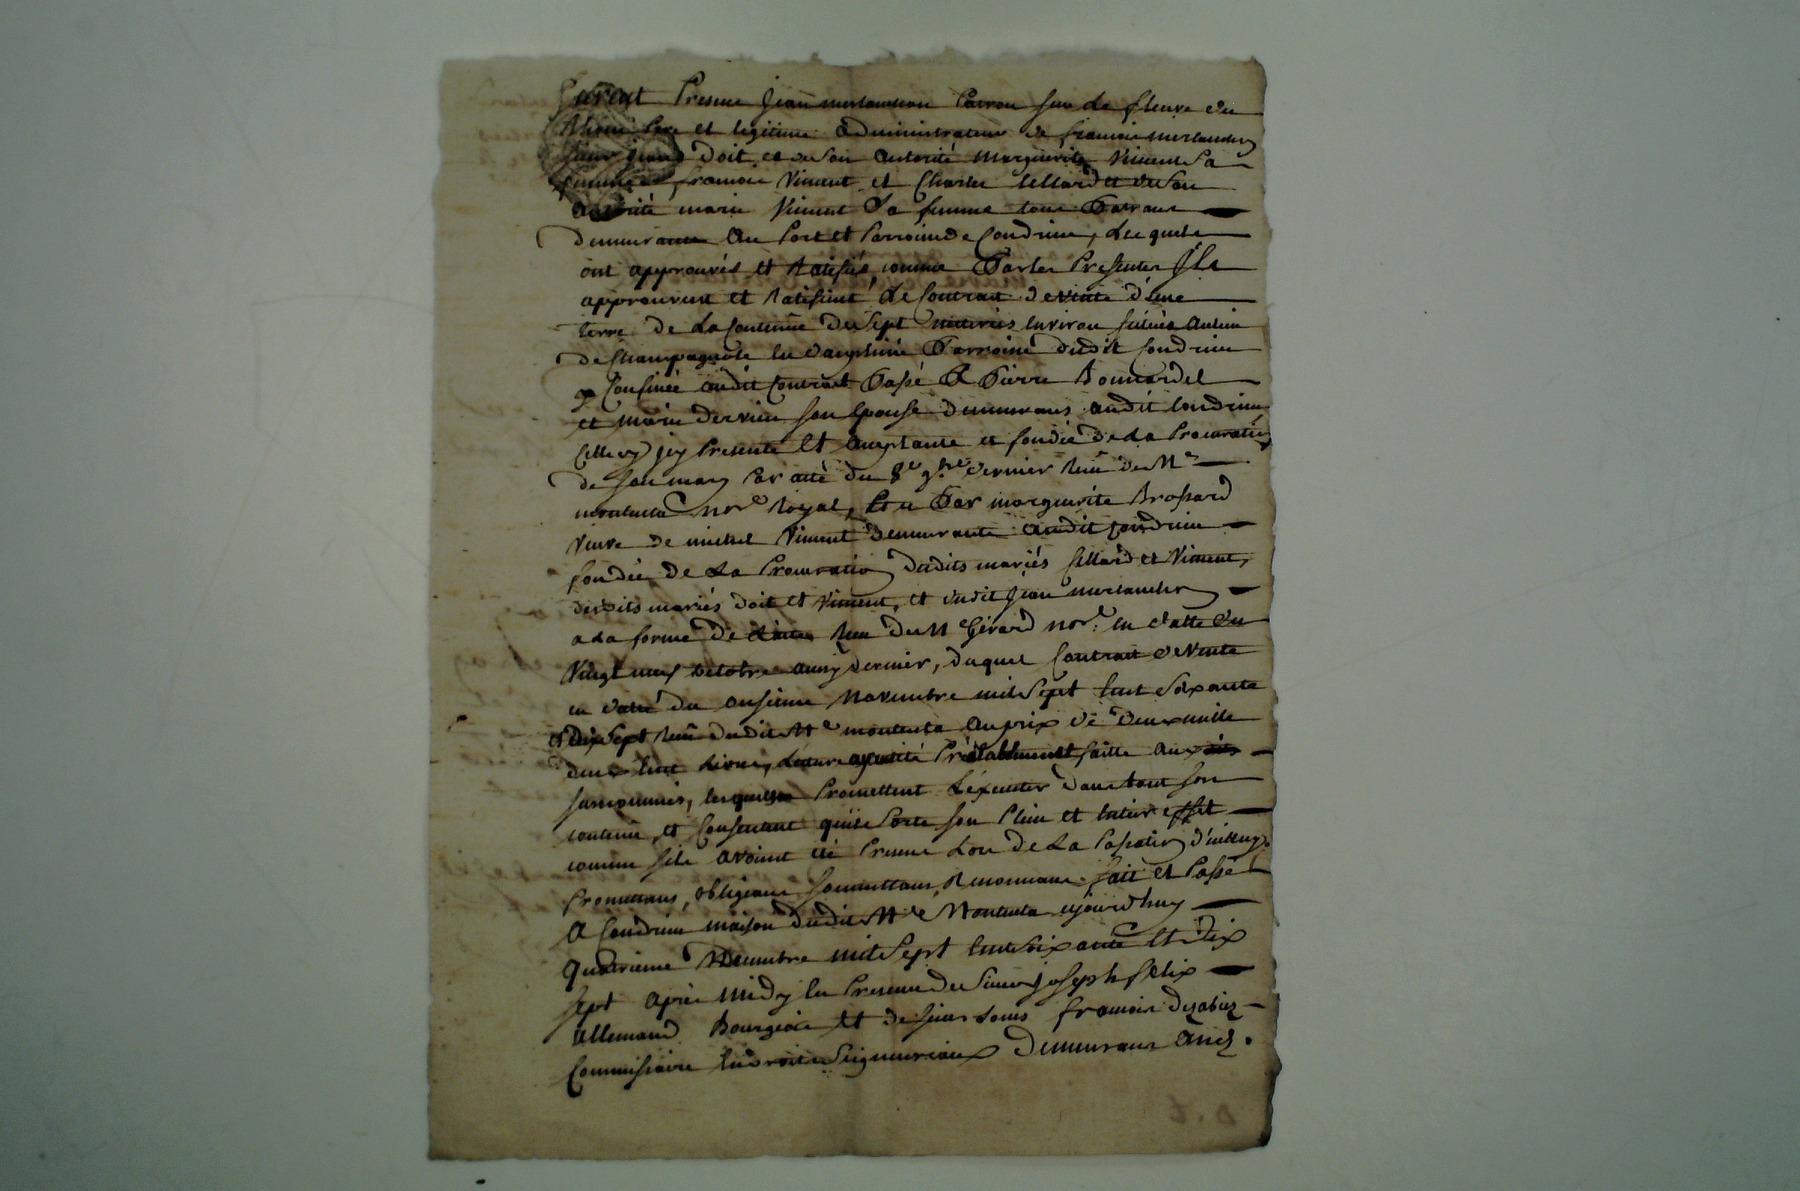 furent Presens Jean merlanchon Patron sur le fleuve du
Rhone Pere et legitime administrateur de francois merlanchon
sieur Jean Doit et de son autorité Marguerite Vincent Sa
femme francois Vincent et Charles sellard et de son
autorité marie Vincent Sa femme tous Patrons
demeurants au Port et Parroisse de Condrieu, Lesquels
ont approuvés et Ratifiés, comme Par les Presentes Ils
approuvent et Ratifient Le Contrat de vente d'une
terre de La Contenue de Sept meterées environ située au lieu
de Champagnole en Dauphiné Parroisse dudit Condrieu
Confinée audit Contrat Passé A Pierre Bonnardel
et marie dervieu son Epouse demeurans audit Condrieu
Celle cy icy Presente et aceptante et fondée de La Procuration
de son mary Par acte du 8e 9bre dernier Reçu de Me
montuta nore Royal, Et a Par marguerite Brossard
veuve de michel Vincent demeurante audit Condrieu
fondée de La Procuration desdits mariés sellard et Vincent,
desdits mariés doit et Vincent, et dudit Jean merlanchon
a La forme de Reçu de Me Gérard nore. en datte du
Vingt neuf octobre aussy dernier, duquel Contrat de Vente
en datte du onsieme Novembre mil Sept Cent Soixante
et dix Sept Reçu dudit Me montuta au prix de deux mille
deux Cent Livres, Lecture ayant été Préalablement faitte aux dits
susnommés, lesquels Promettent L'éxecuter dans tout son
contenu, et Consentent qu'il Sorte son Plein et entier effet
comme s'ils avoient été Presens Lors de La Passation d'iceluy.
Promettans, obligeans soumettans, Renonceans. fait et Passé
A Condrieu maison dudit Me Montuta ajourd'huy
Quatrieme Decembre mil Sept Cent Soixante et Dix
Sept après midy en Presence de Sieur Joseph felix
allemand Bourgeois et de sieur Louis francois Dezabiez
Commissaire en droits Seigneuriaux Demeurans